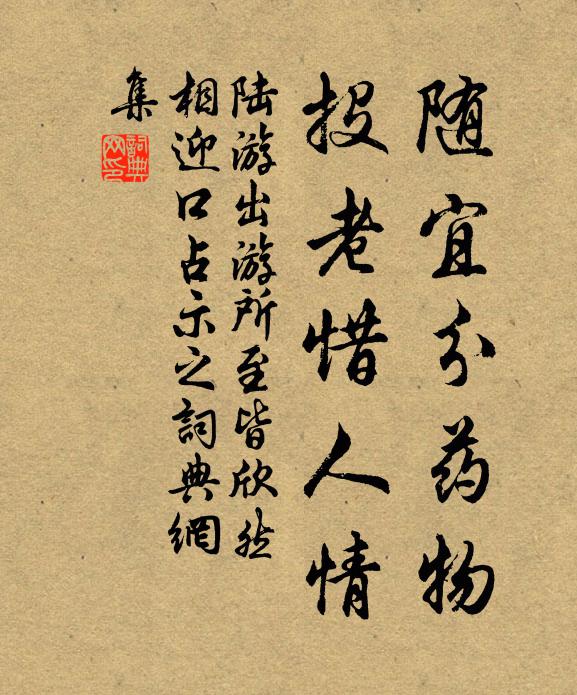 随宜分药物
投老惜人情
陆游出游所至皆欣然
相迎口占示之詞典網
集
詞典网印